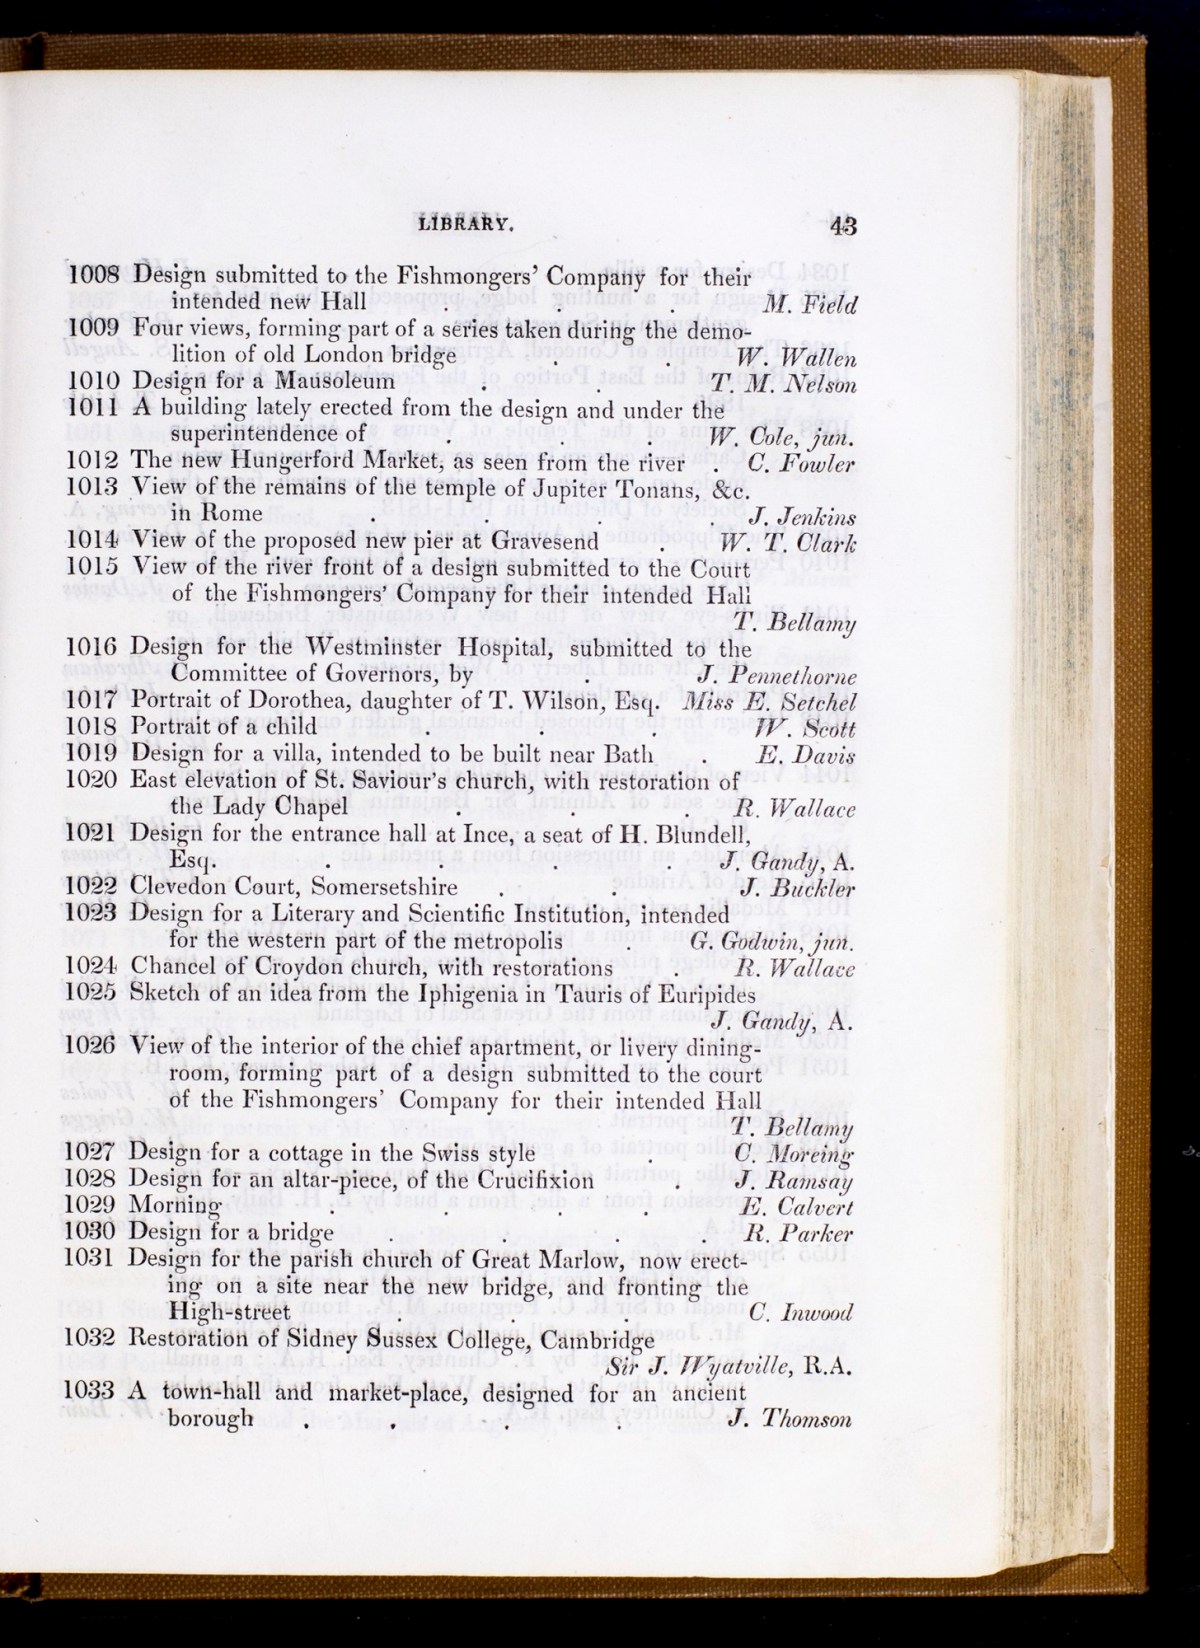 LIBRARY. 43
1008 Design submitted to the Fishmongers' Company for their
intended new Hall . . . M. Field
1009 Four views, forming part of a series taken during the demo-
lition of old London bridge . . W. Wallen
1010 Design for a Mausoleum . . T. M. Nelson
1011 A building lately erected from the design and under the
superintendence of . . . W. Cole, jun.
1012 The new Hungerford Market, as seen from the river . C. Fowler
1013 View of the remains of the temple of Jupiter Tonans, &c.
in Rome . . . . J. Jenkins
1014 View of the proposed new pier at Gravesend . W. T. Clark
1015 View of the river front of a design submitted to the Court
of the Fishmongers' Company for their intended Hall
T. Bellamy
1016 Design for the Westminster Hospital, submitted to the
Committee of Governors, by . . J. Pennethorne
1017 Portrait of Dorothea, daughter of T. Wilson, Esq. Miss E. Setchel
1018 Portrait of a child . . . W. Scott
1019 Design for a villa, intended to be built near Bath . E. Davis
1020 East elevation of St. Saviour's church, with restoration of
the Lady Chapel . . . R. Wallace
1021 Design for the entrance hall at Ince, a seat of H. Blundell,
Esq. . . . . J. Gandy, A.
1022 Clevedon Court, Somersetshire . . . J. Buckler
1023 Design for a Literary and Scientific Institution, intended
for the western part of the metropolis . G. Godwin, jun.
1024 Chancel of Croydon church, with restorations . R. Wallace
1025 Sketch of an idea from the Iphigenia in Tauris of Euripides
J. Gandy, A.
1026 View of the interior of the chief apartment, or livery dining-
room, forming part of a design submitted to the court
of the Fishmongers' Company for their intended Hall
T. Bellamy
1027 Design for a cottage in the Swiss style . . C. Moreing
1028 Design for an altar-piece, of the Crucifixion . J. Ramsay
1029 Morning . . . . E. Calvert
1030 Design for a bridge . . . . R. Parker
1031 Design for the parish church of Great Marlow, now erect-
ing on a site near the new bridge, and fronting the
High-street . . . C. Inwood
1032 Restoration of Sidney Sussex College, Cambridge
Sir J. Wyatville, R.A.
1033 A town-hall and market-place, designed for an ancient
borough . . . . J. Thomson